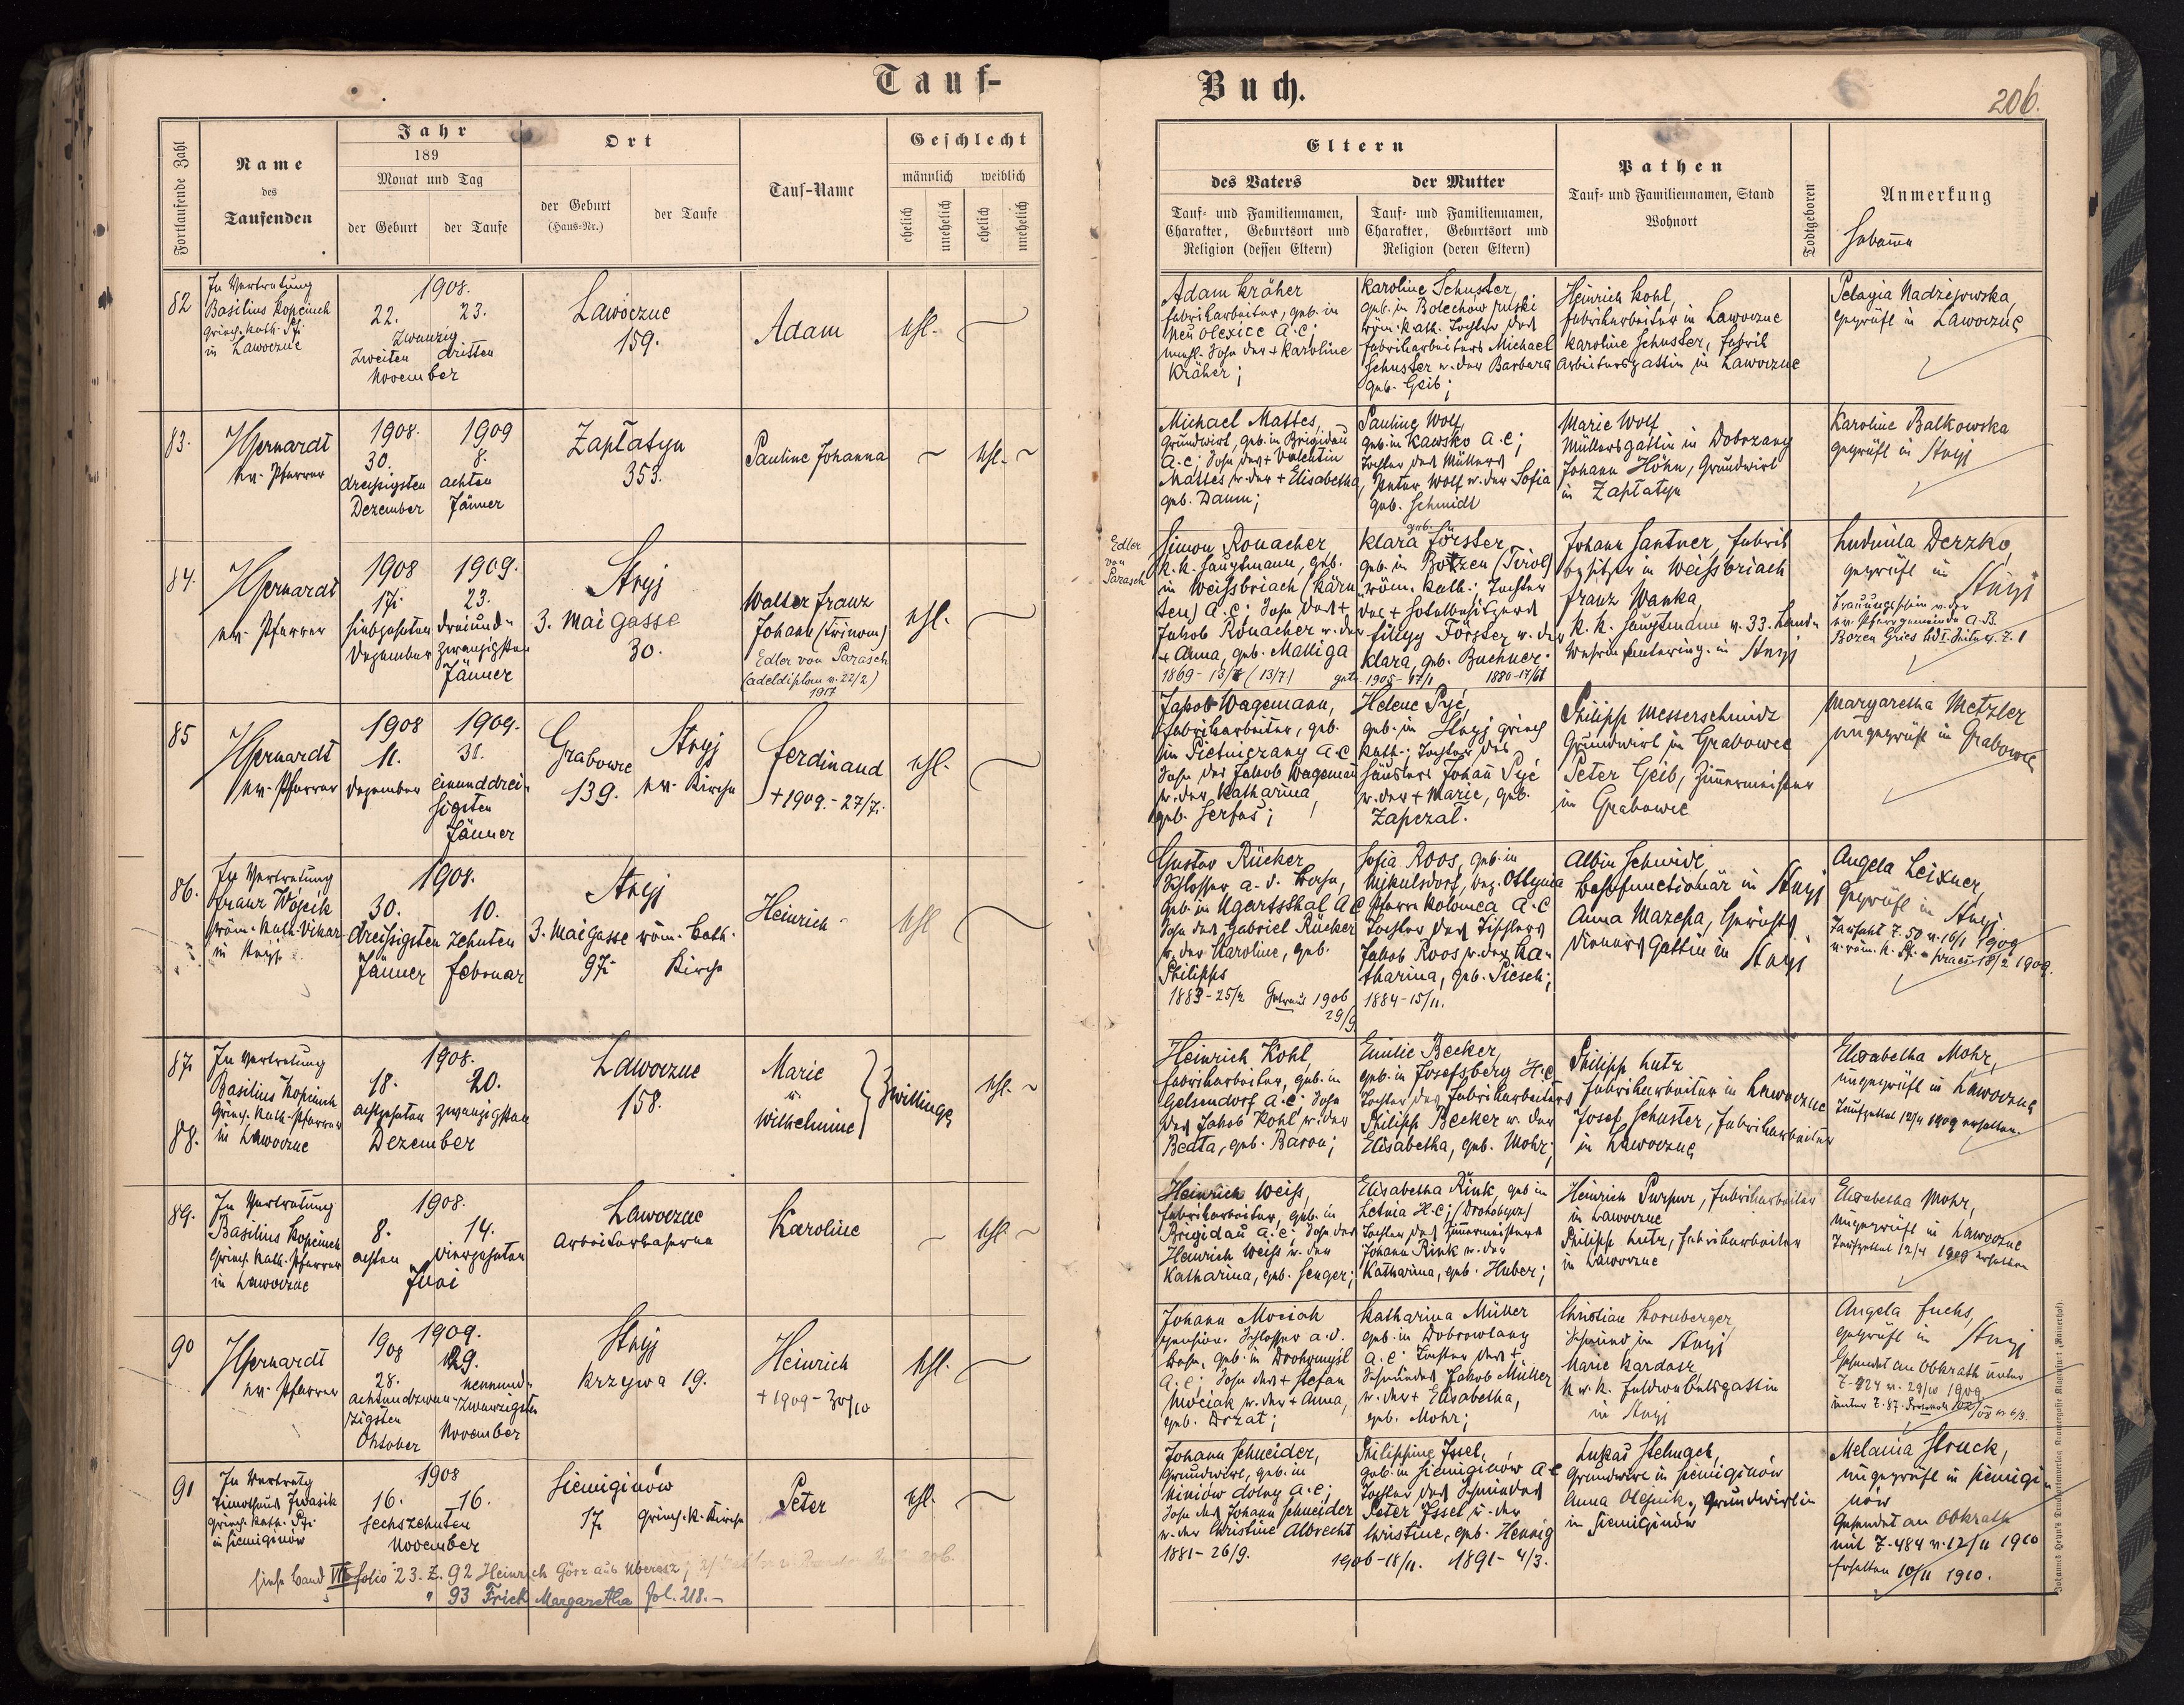 Tauf-
Buch.
206.
Fortlaufende Zahl
Name
des
Taufenden
Jahr
189
Monat und Tag
der Geburt
der Taufe
Ort
der Geburt
(Haus-Nr.)
der Taufe
Tauf-Name
Geschlecht
männlich
weiblich
ehelich
unehelich
ehelich
unehelich
Eltern
des Vaters
der Mutter
Tauf- und Familiennamen,
Charakter, Geburtsort und
Religion (dessen Eltern)
Tauf- und Familiennamen,
Charakter, Geburtsort und
Religion (deren Eltern)
Pathen
Tauf- und Familiennamen, Stand
Wohnort
Todtgeboren
Anmerkung
Hebamme
82
In Vertretung
Basilius Kopciuch
griech. kath. Pfr.
in Lawoczne
1908.
22. 23.
Zwanzig
Zweiten dritten
November
Lawoczne
159.
Adam
ehl.
Adam Kräher
Fabrikarbeiter, geb. in
Neu Olexice A.C;
unehl. Sohn der + Karoline
Kräher;
Karoline Schuster,
geb. in Bolechow ruski
röm. kath. Tochter des
Fabrikarbeiters Michael
Schuster u. der Barbara
geb. Geib;
Heinrich Kohl,
Fabrikarbeiter in Lawoczne
Karoline Schuster, Fabrik
Arbeitersgattin in Lawoczne
Pelagia Nadziejowska,
geprüft in Lawoczne
83.
Gerhardt
ev. Pfarrer
1908. 1909
30. 8.
dreissigsten achten
Dezember Jänner
Zaplatyn
353.
Pauline Johanna
ehl.
Michael Mattes,
Grundwirt, geb. in Brigidau
A.C; Sohn des + Valentin
Mattes u. der + Elisabetha,
geb. Daum;
Pauline Wolf,
geb. in Kawsko A.C;
Tochter des Müllers
Peter Wolf u. der Sofia
geb. Schmidt
Marie Wolf
Müllersgattin in Dobrzany
Johann Höhn, Grundwirt
in Zaplatyn
Karoline Balkowska
geprüft in Stryj
84.
Gerhardt
ev. Pfarrer
1908 1909.
17. 23.
siebzehnten dreiund-
Dezember zwanzigsten
Jänner
Stryj
3. Mai Gasse
30.
Walter Franz
Johann (trinom)
Edler von Parasch
(Adeldiplom v. 22/2)
1917
ehl.
Edler
von
Parasch
Simon Ronacher,
K.K. Hauptmann, geb.
in Weissbriach (Kärn
ten) A.C; Sohn des +
Jakob Ronacher u. der
+ Anna, geb. Malliga
1869-13/7 (13/7)
geb.
Klara Förster
geb. in Bozen (Tirol)
röm. kath.; Tochter
des + Hotelbesitzers
Filipp Förster u. der
Klara, geb. Buchner.
getr. 1905-17/1
Johann Santner, Fabrik
besitzer in Weissbriach
Franz Wanka,
K. K. Hauptmann v. 33. Land-
wehrinfanterieg. in Stryj
Ludmila Derzko,
geprüft in Stryj
Trauungsschein v. der
ev. Pfarrgemeinde A.B.
Bozen Gries Bd I. Seite 4. Z. 1
85
Gerhardt
ev. Pfarrer
1908 1909.
11. 31.
Dezember einunddreis-
sigsten
Jänner
Grabowce
139.
Stryj
ev. Kirche
Ferdinand
+ 1909.-27/7.
ehl.
Jakob Wagemann,
Fabrikarbeiter, geb.
in Pietniczany A.C
Sohn des Jakob Wagemann
u. der Katharina
geb. Serfas;
Helene Pyć,
geb. in Stryj griech
kath.; Tochter des
Häuslers Johann Pyć
u. der + Marie, geb.
Zapczal.
Philipp Messerschmidt
Grundwirt in Grabowce
Peter Geib, Zimmermeister
in Grabowce
Margaretha Metzler
ungeprüft in Grabowce
86.
In Vertretung
Franz Wójcik
röm. kath. Vikar
in Stryj
1908.
30. 10.
dreissigsten zehnten
Jänner Februar
Stryj
3. Mai Gasse
97.
röm. kath.
Kirche
Heinrich
ehl
Gustav Rücker
Schlosser a. d. Bahn,
geb. in Ugartsthal A.C
Sohn des Gabriel Rücker
u. der Karoline, geb.
Philipps
1883-25/2 Getraut 1906
29/9
Sofia Roos, geb. in
Mikulsdorf, bez. Ottynia
Pfarre Kolomea A.C
Tochter des Tischlers
Jakob Roos u. der Ka-
tharina, geb. Piesch;
1884-15/11.
Albin Schmidt,
Postfunctionär in Stryj
Anna Mazepa, Gerichts
dieners Gattin in Stryj
Angela Leixner,
geprüft in Stryj
87.
88.
In Vertretung
Basilius Kopciuch
Griech. kath. Pfarrer
in Lawoczne
1908.
18. 20.
achtzehnten zwanzigsten
Dezember
Lawoczne
158.
Marie
u.
Wilhelmine
Zwillinge
ehl.
Heinrich Kohl,
Fabrikarbeiter, geb. in
Gelsendorf A.C. Sohn
des Jakob Kohl u. der
Beata, geb. Baron;
Emilie Becker,
geb. in Josefsberg H.C
Tochter des Fabrikarbeiters
Philipp Becker u. der
Elisabetha, geb. Mohr;
Philipp Lutz
Fabrikarbeiter in Lawoczne
Josef Schuster, Fabrikarbeiter
in Lawoczne
Elisabetha Mohr,
ungeprüft in Lawoczne
Taufzettel 12/4 1909 erhalten.
89.
In Vertretung
Basilius Kopciuch
Griech. kath. Pfarrer
in Lawoczne
1908.
8. 14.
achten vierzehnten
Juni
Lawoczne
Arbeiterkaserne
Karoline
ehl.
Heinrich Weiss,
Fabrikarbeiter, geb. in
Brigidau A.C; Sohn des
Heinrich Weiss u. der
Katharina, geb. Senger;
Elisabetha Rink, geb in
Letnia H.C; (Drohobycz)
Tochter des Zimmermeisters
Johann Rink u. der
Katharina, geb. Huber;
Heinrich Purpur, Fabrikarbeiter
in Lawoczne
Philipp Lutz, Fabrikarbeiter
in Lawoczne
Elisabetha Mohr,
ungeprüft in Lawoczne
Taufzettel 12/4 1909 erhalten
90
Gerhardt
ev. Pfarrer
1908 1909.
28. 29.
achtundzwan- neunund-
zigsten zwanzigsten
Oktober November
Stryj
Krzywa 19.
Heinrich
+ 1909-30/10
ehl.
Johann Mociak
pension. Schlosser a. d.
Bahn, geb. in Drohomysl
A.C; Sohn des + Stefan
Mociak u. der + Anna,
geb. Drzat;
Katharina Müller
geb. in Dobrowlany
A.C. Tochter des +
Schmiedes Jakob Müller
u. der + Elisabetha,
geb. Mohr;
Christian Kornberger,
Schmied in Stryj
Marie Kardasz,
K. u. K. Feldwebelsgattin
in Stryj
Angela Fuchs,
geprüft in Stryj
Gesendet an Obkrath unter
91
In Vertretg
Timotheus Iwasik
griech. kath. Pfr.
in Siemiginów
1908
16. 16.
sechszehnten
November
Siemiginów
17. griech. k. Kirche
Peter
ehl.
Johann Schneider,
Grundwirt, geb. in
Niniów dolny A.C;
Sohn des Johann Schneider
u. der Christine Albrecht
1881-26/9.
Philippine Issel,
geb. in Siemiginów A.C
Tochter des Schmiedes
Peter Issel u. der
Christine, geb. Hennig
1906-18/11. 1891-4/3.
Lukas Stelmach,
Grundwirt in Siemiginów
Anna Olejnik, Grundwirtin
in Siemiginów
Melania Struck,
ungeprüft in Siemigi-
nów
Gesendet an Obkrath
mit Z-484 v. 12/11 1910
Erhalten 10/11 1910.
siehe Band VII folio 23. Z. 92 Heinrich Görz aus Uberesz;
" 93 Frick Margaretha fol. 218.-